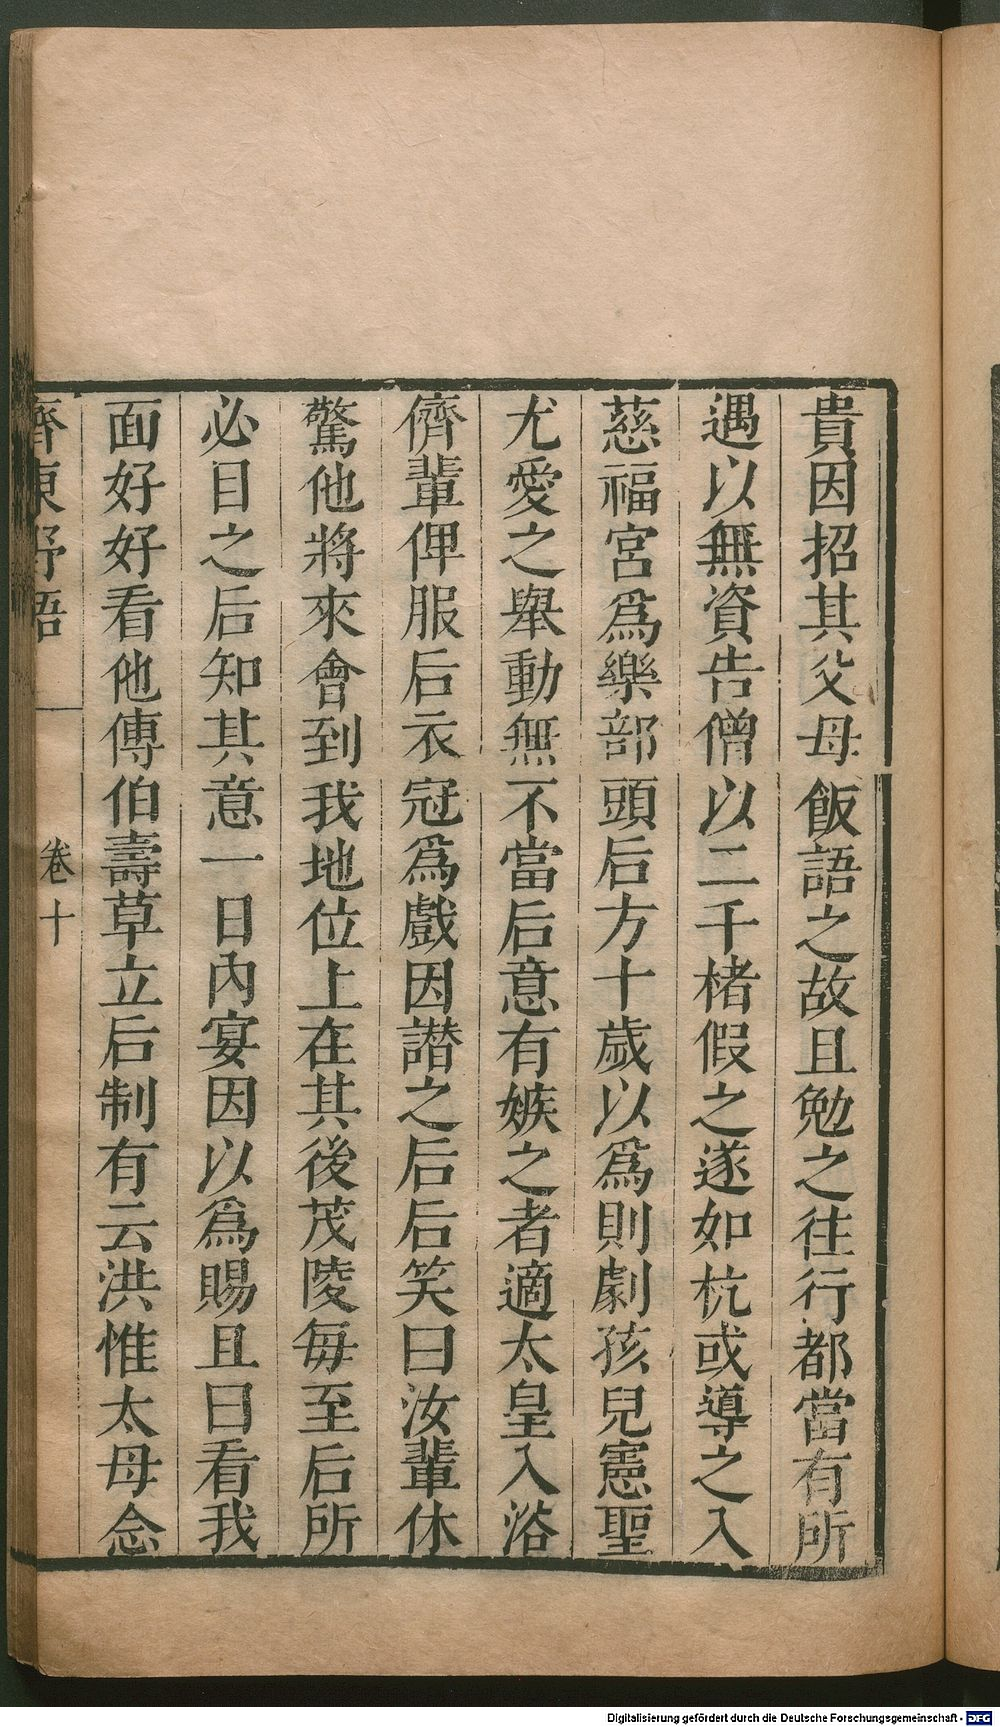 貴因招其父母飯語之故且勉之往行都當有所
遇以無資告僧以二千楮假之遂如杭或導之入
慈福宮爲樂部頭后方十歲以爲則劇孩兒憲聖
尤愛之舉動無不當后意有嫉之者適太皇入浴
儕輩俾服后衣冠爲戲因譛之后后笑曰汝輩休
驚他將來會到我地位上在其後茂陵每至后所
必目之后知其意一日內宴因以爲賜且曰看我
面好好看他傅伯壽草立后制有云洪惟太母念
齊東野語 卷十
Digitalisierung gefördert durch die Deutsche Forschungsgemeinschaft - DFG